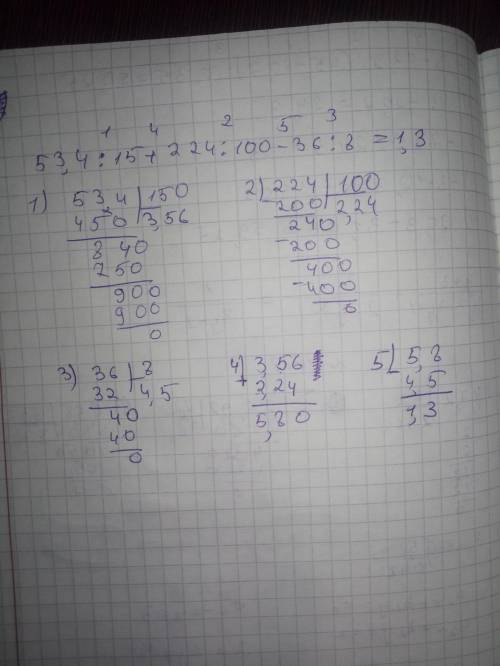 1 4 2 5 3
53,4 : 15 + 224 : 100 - 36 : 8 = 1,3
1) 534 | 150
450 | 3,56
840
750
900
900
0
2) 224 | 100
200 | 2,24
240
-200
400
-400
0
3) 36 | 8
32 | 4,5
40
40
0
4) 3,56
+ 2,24
5,80
5) 5,8
- 4,5
1,3